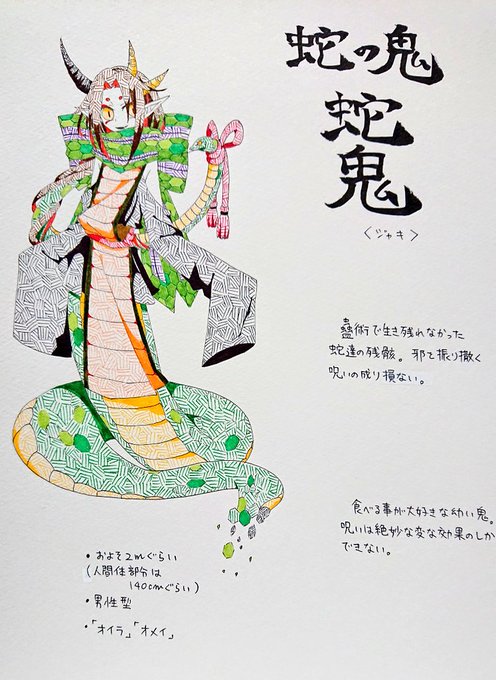 蛇の鬼
蛇
鬼
〈ジャキ〉
蠱術で生き残れなかった
蛇達の残骸。邪で振り撒く
呪いの成り損ない。
食べる事が大好きな幼い鬼。
呪いは絶妙な変な効果のしか
できない。
・おおよそ2mぐらい
(人間体部分は
140cmぐらい)
・男性型
・「オイラ」「オメイ」